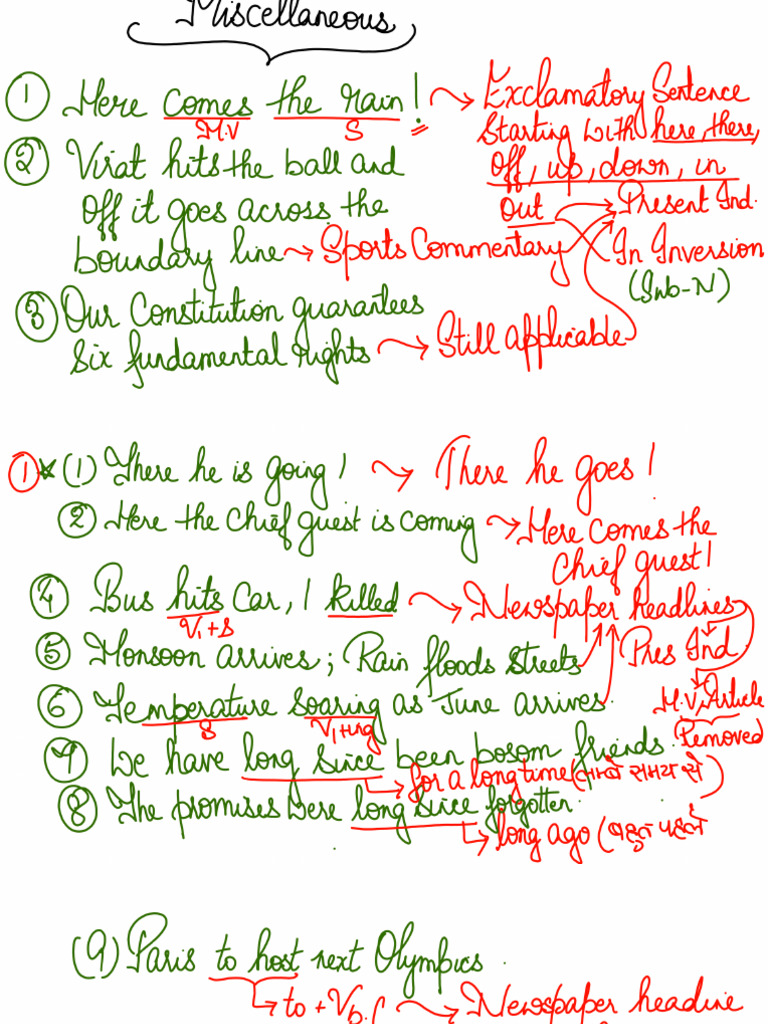 Miscellaneous
① Here comes the rain! → Exclamatory Sentence
M.V S
Starting with here, there,
off, up, down, in
out → Present Ind.
② Virat hits the ball and
off it goes across the
boundary line → Sports Commentary
In Inversion
(Sub-N)
③ Our Constitution guarantees
six fundamental rights → Still applicable
① * (1) There he is going! → There he goes!
② Here the chief guest is coming → Here comes the
chief guest!
④ Bus hits Car, 1 killed → Newspaper headlines
V₁+s
Pres Ind
⑤ Monsoon arrives; Rain floods streets
⑥ Temperature soaring as June arrives
S V₁+ing
M.V, Article
Removed
⑦ We have long since been bosom friends.
→ for a long time (लम्बे समय से)
⑧ The promises were long since forgotten.
→ long ago (बहुत पहले
(9) Paris to host next Olympics.
→ to + Vb.f → Newspaper headline